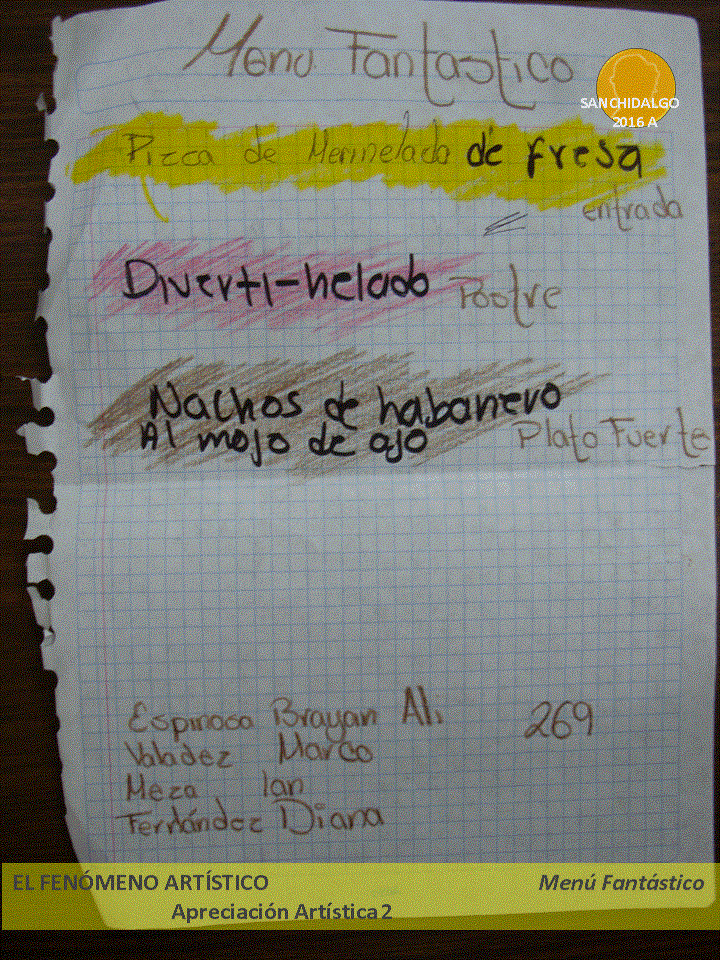 Menu Fantastico
SANCHIDALGO
2016 A
Pizza de Mermelada de fresa
entrada
Diverti-helado Postre
Nachos de habanero
Al mojo de ajo Plato Fuerte
Espinosa Brayan Ali 269
Valadez Marco
Meza Ian
Fernández Diana
EL FENÓMENO ARTÍSTICO Menú Fantástico
Apreciación Artística 2